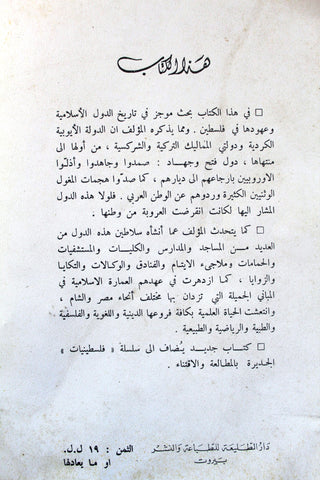 هذا الكتاب
□ في هذا الكتاب بحث موجز في تاريخ الدول الاسلامية
وعهودها في فلسطين . ومما يذكره المؤلف ان الدولة الأيوبية
الكردية ودولتي المماليك التركية والشركسية ، من أولها الى
منتهاها ، دول فتح وجهاد : صمدوا وجاهدوا وأذلّوا
الاوروبيين بارجاعهم الى ديارهم ، كما صدّوا هجمات المغول
الوثنيين الكثيرة وردوهم عن الوطن العربي . فلولا هذه الدول
المشار اليها لكانت انقرضت العروبة من وطنها .
□ كما يتحدث المؤلف عما أنشأه سلاطين هذه الدول من
العديد من المساجد والمدارس والكليات والمستشفيات
والحمامات وملاجىء الايتام والفنادق والوكالات والتكايا
والزوايا ، كما ازدهرت في عهدهم العمارة الاسلامية في
المباني الجميلة التي تزدان بها مختلف أنحاء مصر والشام ،
وانتعشت الحياة العلمية بكافة فروعها الدينية واللغوية والفلسفية
والطبية والرياضية والطبيعية .
□ كتاب جديد يُضاف الى سلسلة « فلسطينيات »
الجديرة بالمطالعة والاقتناء .
دار الطليعة للطباعة والنشر
بيروت
الثمن : ١٩ ل.ل.
او ما يعادلها